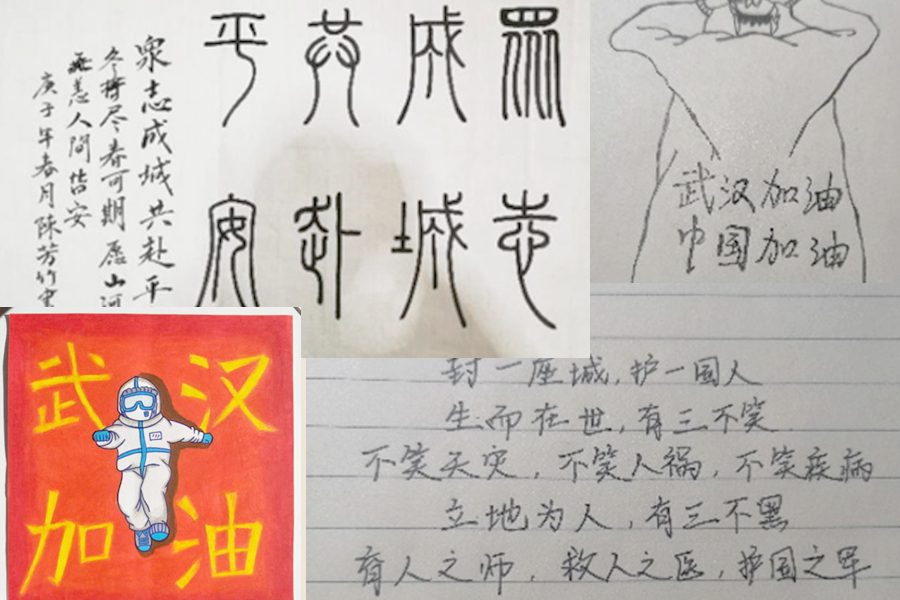 眾志
成城
共赴
平安
衆志成城共赴平
冬将尽春可期愿山河
无恙人间皆安
庚子年春月陈芳竹書
武汉加油
中国加油
武汉
加油
封一座城,护一国人
生而在世,有三不笑
不笑天灾,不笑人祸,不笑疾病
立地为人,有三不黑
育人之师,救人之医,护国之军